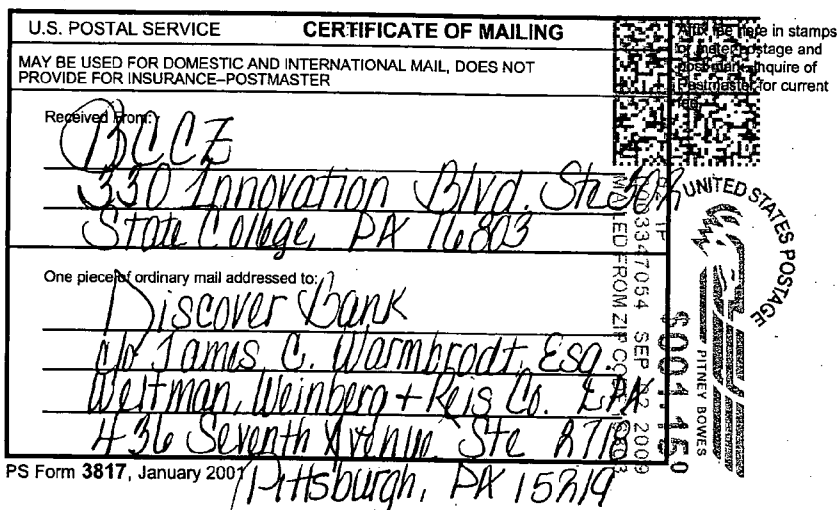 U.S. POSTAL SERVICE CERTIFICATE OF MAILING
MAY BE USED FOR DOMESTIC AND INTERNATIONAL MAIL, DOES NOT
PROVIDE FOR INSURANCE–POSTMASTER
Affix fee here in stamps
or meter postage and
post mark. Inquire of
Postmaster for current
fee.
Received From:
BCCZ
330 Innovation Blvd. Ste 302
State College, PA 16803
One piece of ordinary mail addressed to:
Discover Bank
c/o James C. Warmbrodt, Esq.
Weltman, Weinberg + Reis Co.
436 Seventh Avenue Ste 2718
Pittsburgh, PA 15219
PS Form 3817, January 2001
UNITED STATES POSTAGE
PITNEY BOWES
$001.150
SEP 2009
MAILED FROM ZIP CODE 16803